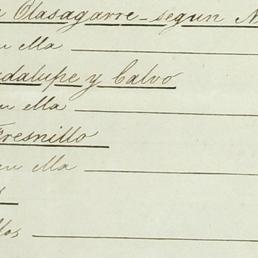 Olasagarre - segun N
en ella
adalupe y Calvo
en ella
Fresnillo
en ella
llos